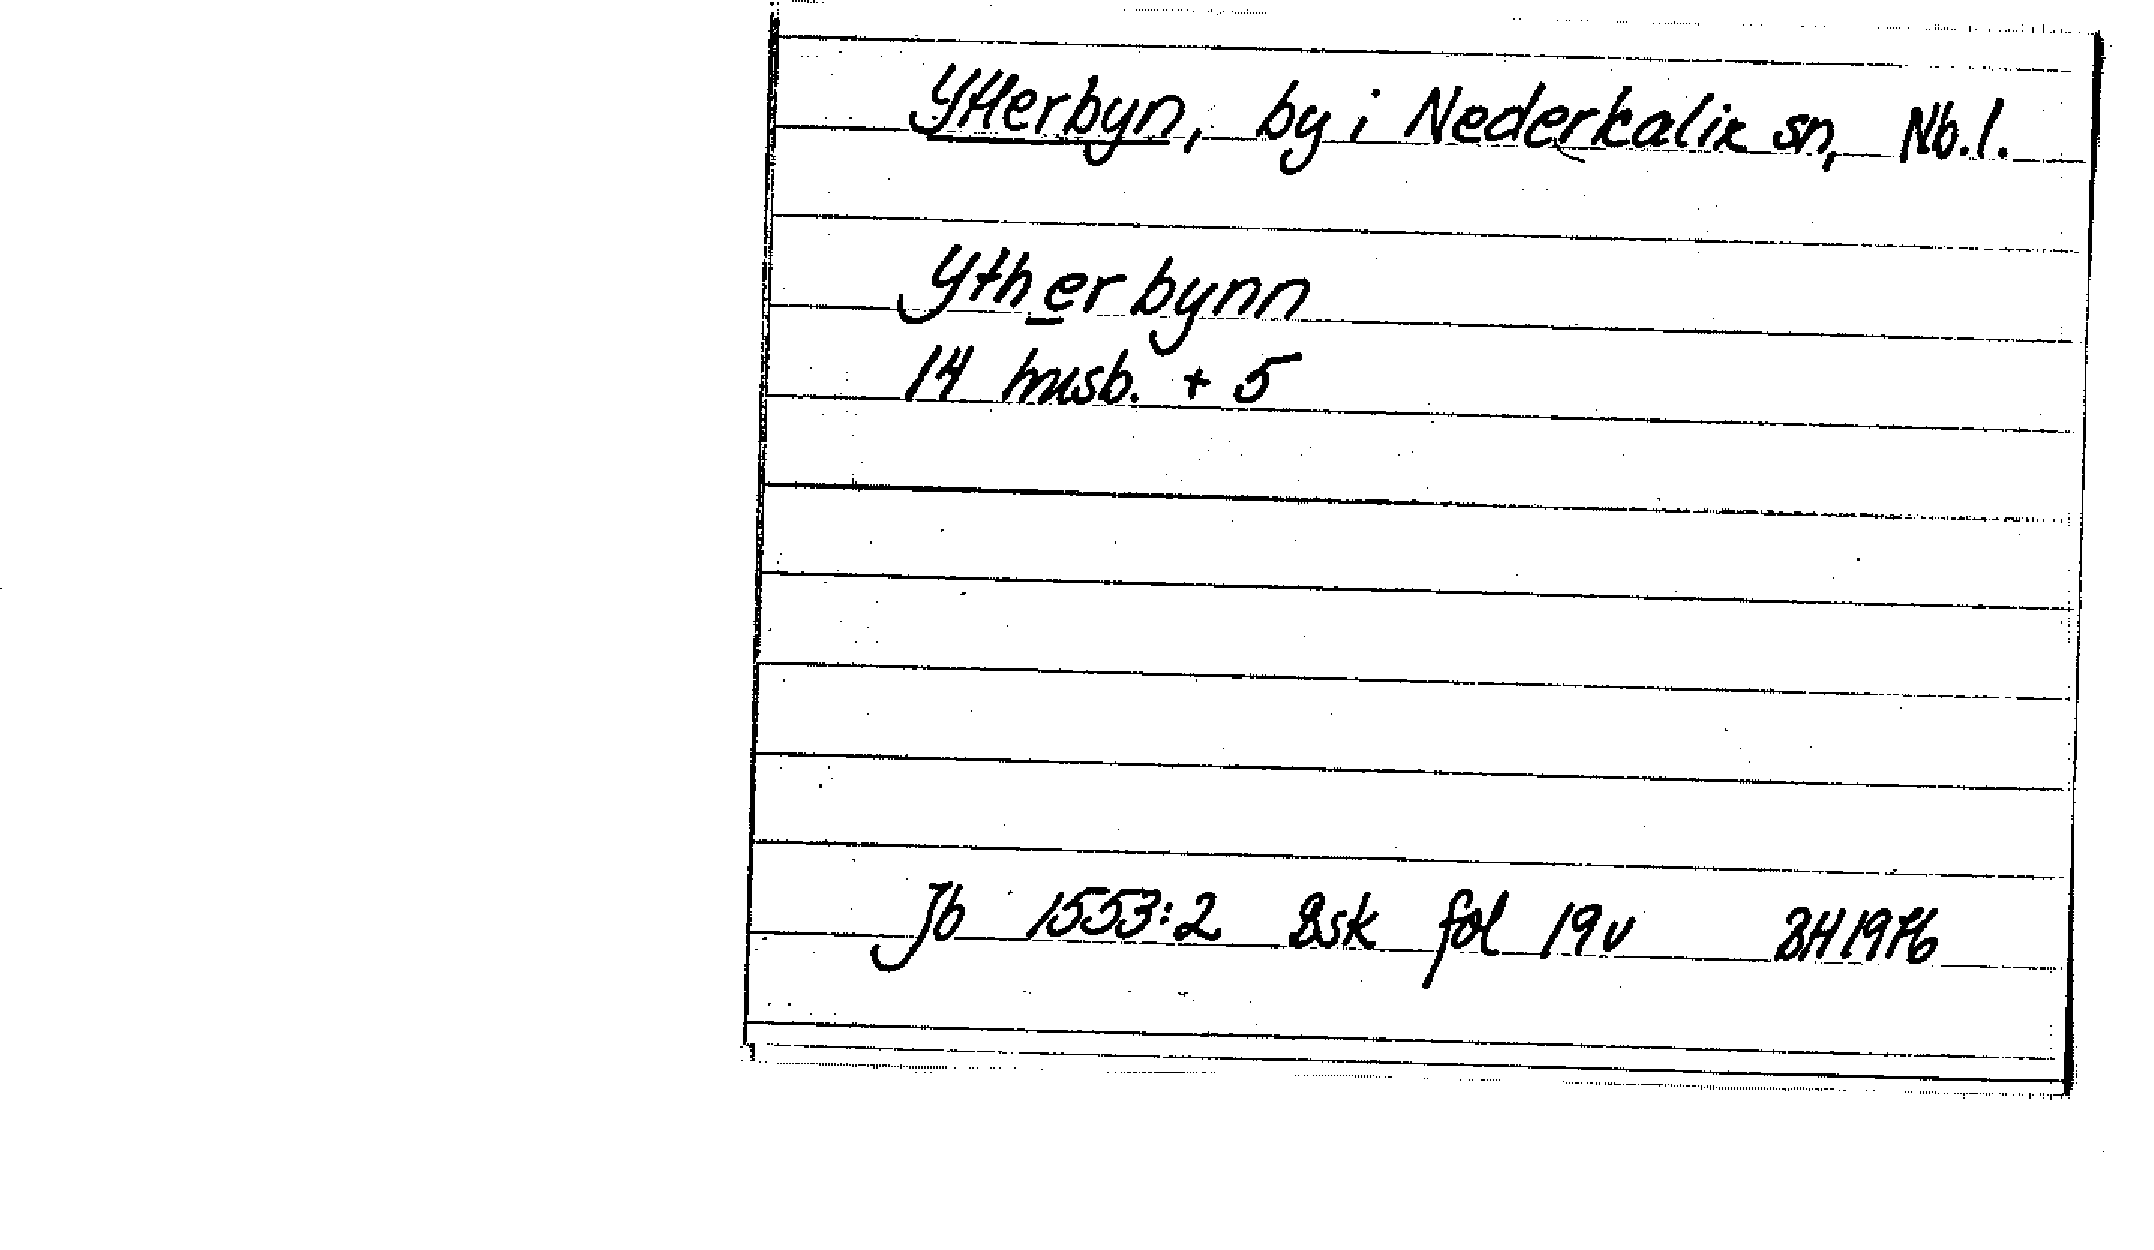 Ytterbyn, by i Nederkalix sn, Nb.l.
Ytherbynn
14 husb. + 5
Jb 1553:2 Bsk fol 19v BH 1976